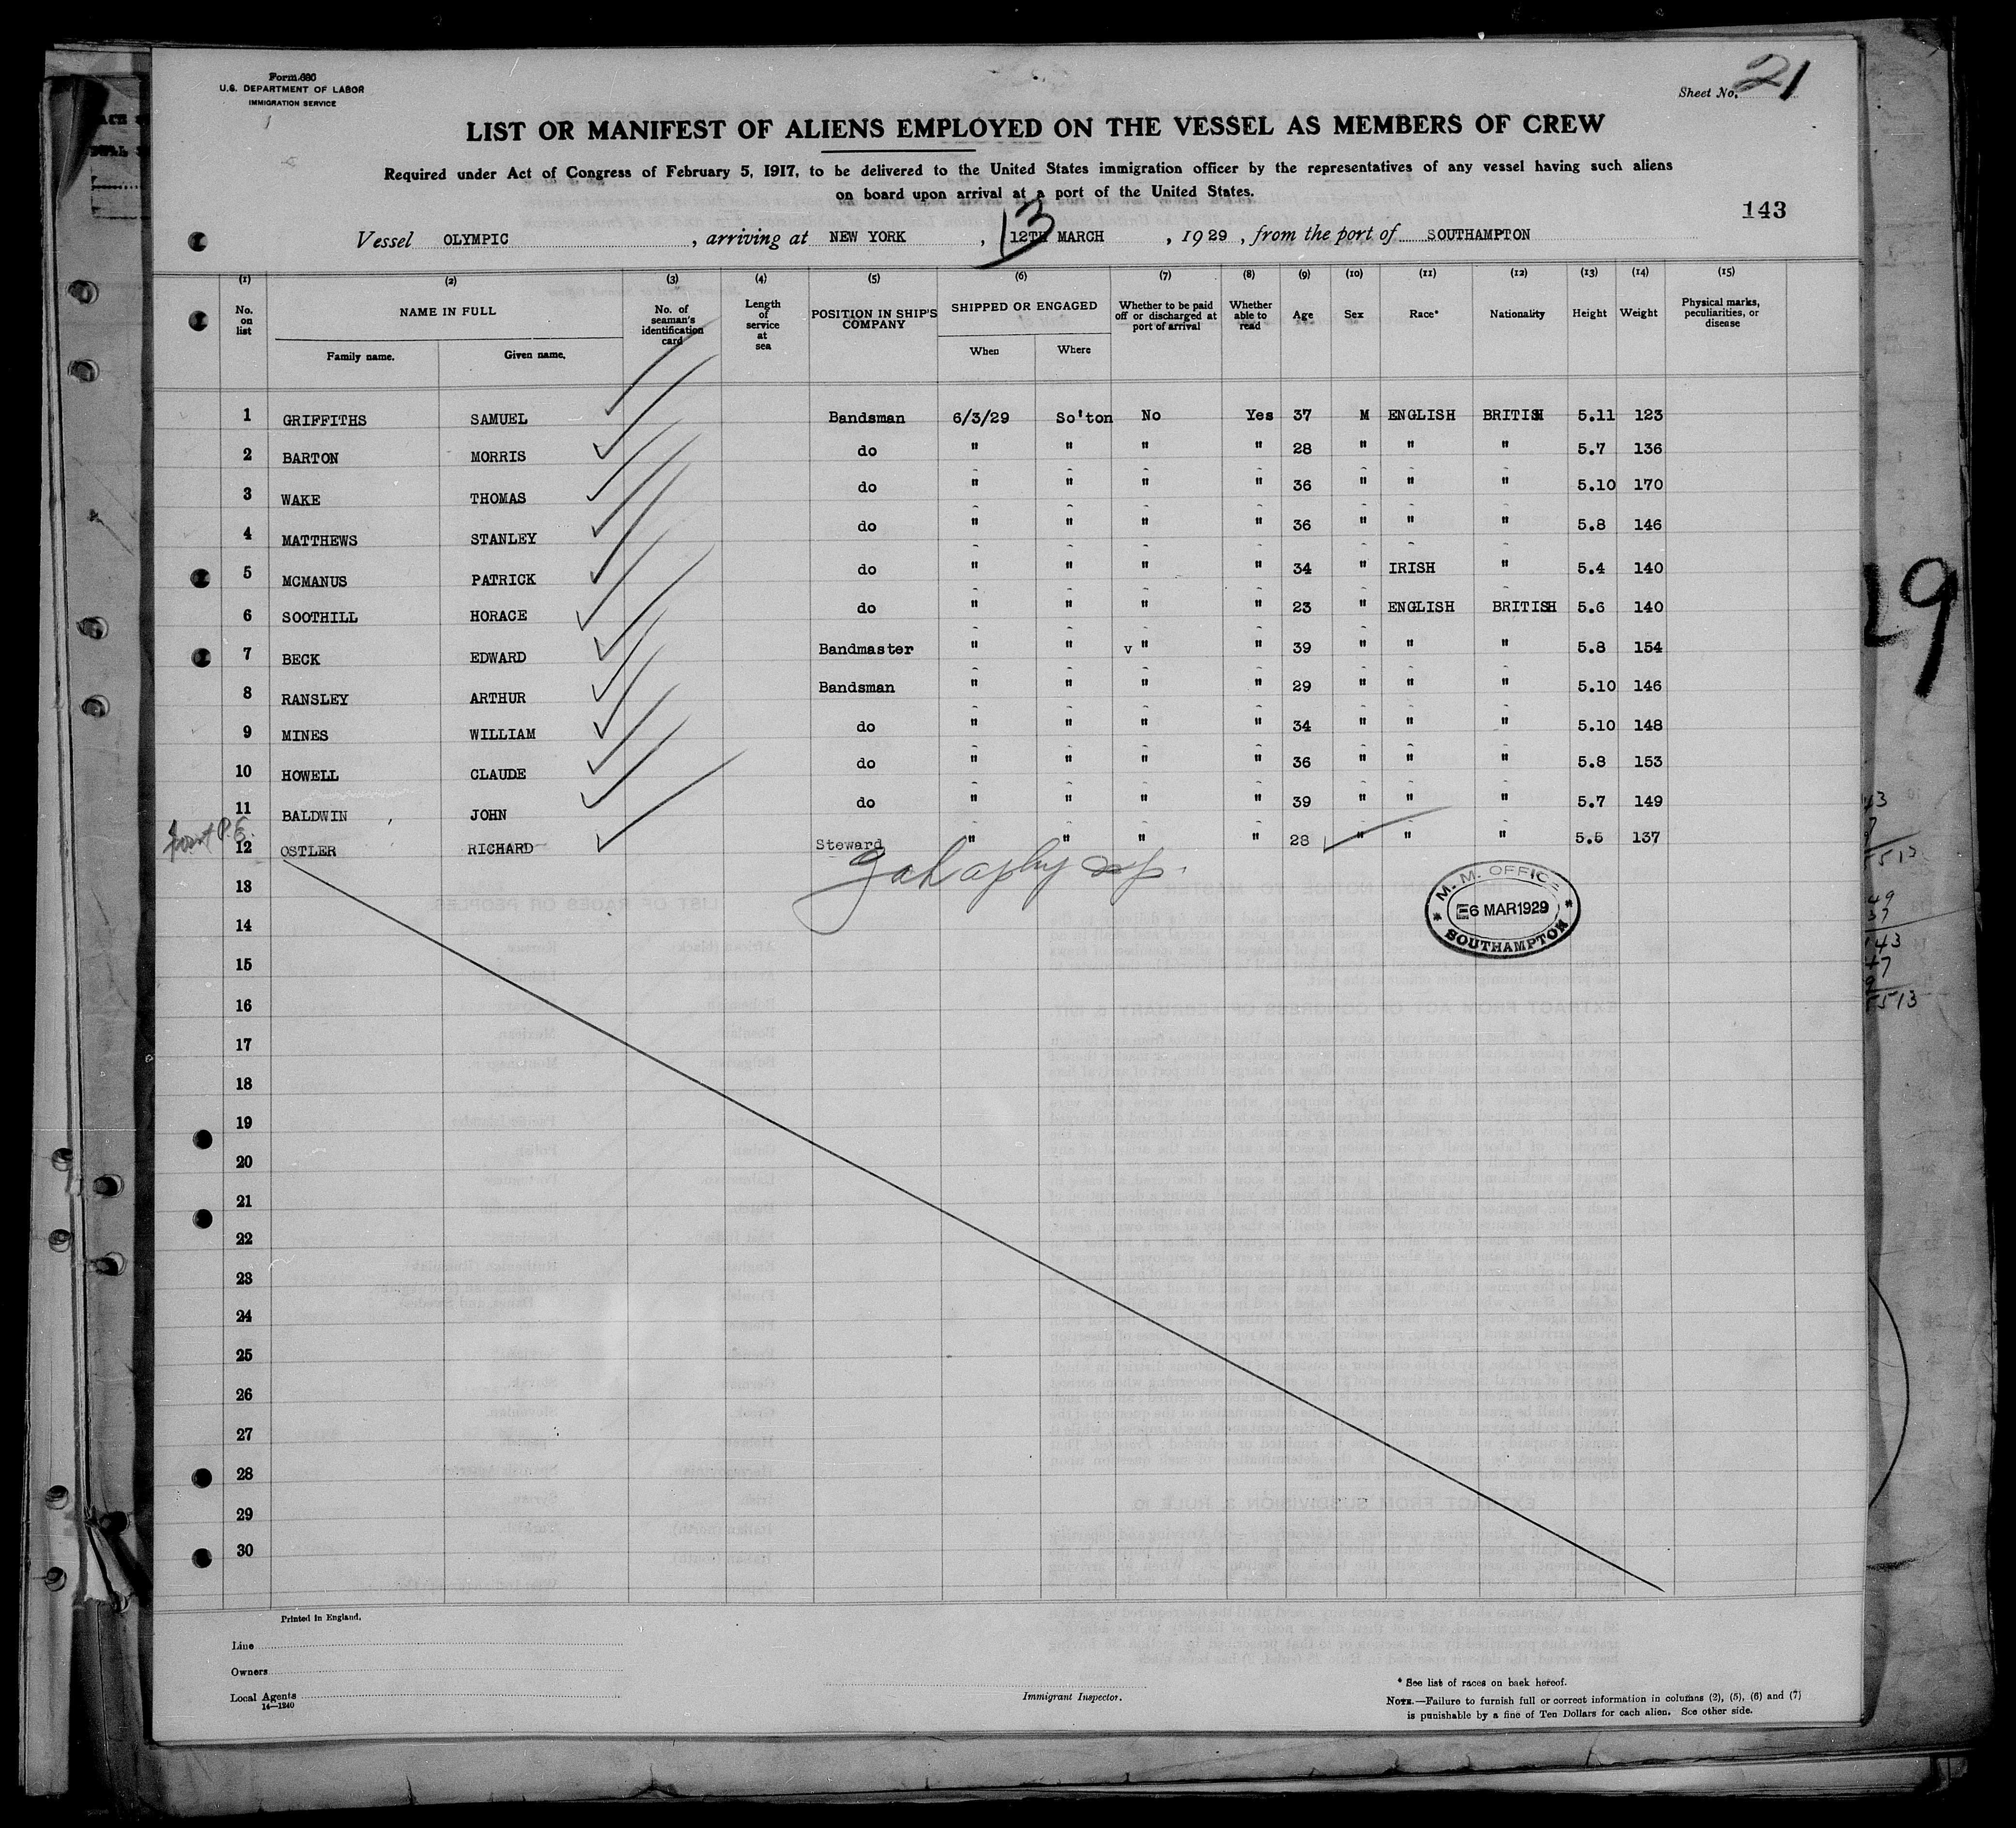 Form 680
U.S. DEPARTMENT OF LABOR
IMMIGRATION SERVICE
Sheet No. 21
LIST OR MANIFEST OF ALIENS EMPLOYED ON THE VESSEL AS MEMBERS OF CREW
Required under Act of Congress of February 5, 1917, to be delivered to the United States immigration officer by the representatives of any vessel having such aliens
on board upon arrival at a port of the United States.
143
Vessel OLYMPIC, arriving at NEW YORK, 13 12TH MARCH, 1929, from the port of SOUTHAMPTON
(1) (2) (3) (4) (5) (6) (7) (8) (9) (10) (11) (12) (13) (14) (15)
No. on list NAME IN FULL Family name. Given name. No. of seaman's identification card Length of service at sea POSITION IN SHIP'S COMPANY SHIPPED OR ENGAGED When Where Whether to be paid off or discharged at port of arrival Whether able to read Age Sex Race* Nationality Height Weight Physical marks, peculiarities, or disease
1 GRIFFITHS SAMUEL Bandsman 6/3/29 So'ton No Yes 37 M ENGLISH BRITISH 5.11 123
2 BARTON MORRIS do " " " " 28 " " " 5.7 136
3 WAKE THOMAS do " " " " 36 " " " 5.10 170
4 MATTHEWS STANLEY do " " " " 36 " " " 5.8 146
5 MCMANUS PATRICK do " " " " 34 " IRISH " 5.4 140
6 SOOTHILL HORACE do " " " " 23 " ENGLISH BRITISH 5.6 140
7 BECK EDWARD Bandmaster " " v " " 39 " " " 5.8 154
8 RANSLEY ARTHUR Bandsman " " " " 29 " " " 5.10 146
9 MINES WILLIAM do " " " " 34 " " " 5.10 148
10 HOWELL CLAUDE do " " " " 36 " " " 5.8 153
11 BALDWIN JOHN do " " " " 39 " " " 5.7 149
P.E.
12 OSTLER RICHARD Steward " " " " 28 " " " 5.5 137
13
M. M. OFFICE
E6 MAR 1929
SOUTHAMPTON
14
15
16
17
18
19
20
21
22
23
24
25
26
27
28
29
30
Printed in England.
Line
Owners
Local Agents
14—1240
Immigrant Inspector.
* See list of races on back hereof.
NOTE.—Failure to furnish full or correct information in columns (2), (5), (6) and (7)
is punishable by a fine of Ten Dollars for each alien. See other side.